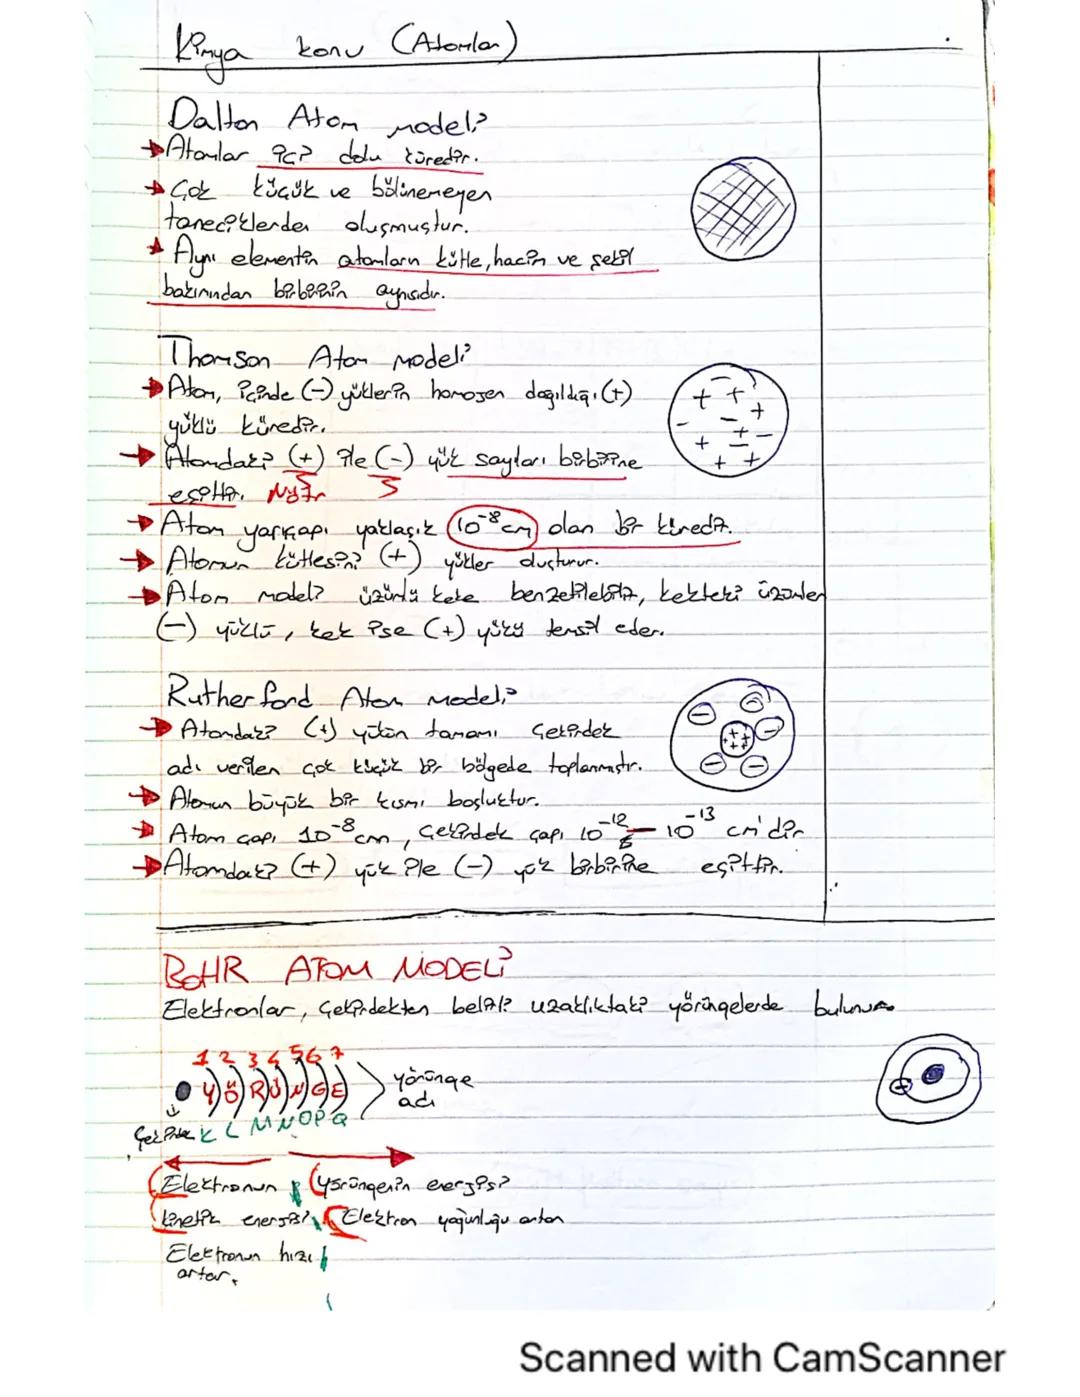 Kimya konu (Atomlar)
Dalton Atom modeli
Atomlar içi dolu küredir.
Çok küçük ve bölünemeyen
taneciklerden oluşmuştur.
Aynı elementin atomların kütle, hacim ve şekil
bakımından birbirinin aynısıdır.
Thomson Atom modeli
Atom, içinde (-) yüklerin homojen dağıldığı (+)
yüklü küredir.
Atomdaki (+) ile (-) yük sayıları birbirine
eşittir.
Atom yarıçapı yaklaşık 10⁻⁸ cm olan bir küredir.
Atomun kütlesini (+) yükler oluşturur.
Atom modeli üzümlü keke benzetilebilir, kekteki üzümler
(-) yüklü, kek ise (+) yükü temsil eder.
Rutherford Atom modeli
Atomdaki (+) yükün tamamı Çekirdek
adı verilen çok küçük bir bölgede toplanmıştır.
Atomun büyük bir kısmı boşluktur.
Atom çapı 10⁻⁸ cm, Çekirdek çapı 10⁻¹² - 10⁻¹³ cm'dir
Atomdaki (+) yük ile (-) yük birbirine eşittir.
BOHR ATOM MODELİ
Elektronlar, Çekirdekten belirli uzaklıktaki yörüngelerde bulunur.
1 2 3 4 5 6 7
Y Ö R Ü N G E yörünge
adı
Çekirdek K L M N O P Q
Elektronun yörüngenin enerjisi
kinetik enerjisi Elektron yoğunluğu artar
Elektronun hızı
artar.
Scanned with CamScanner